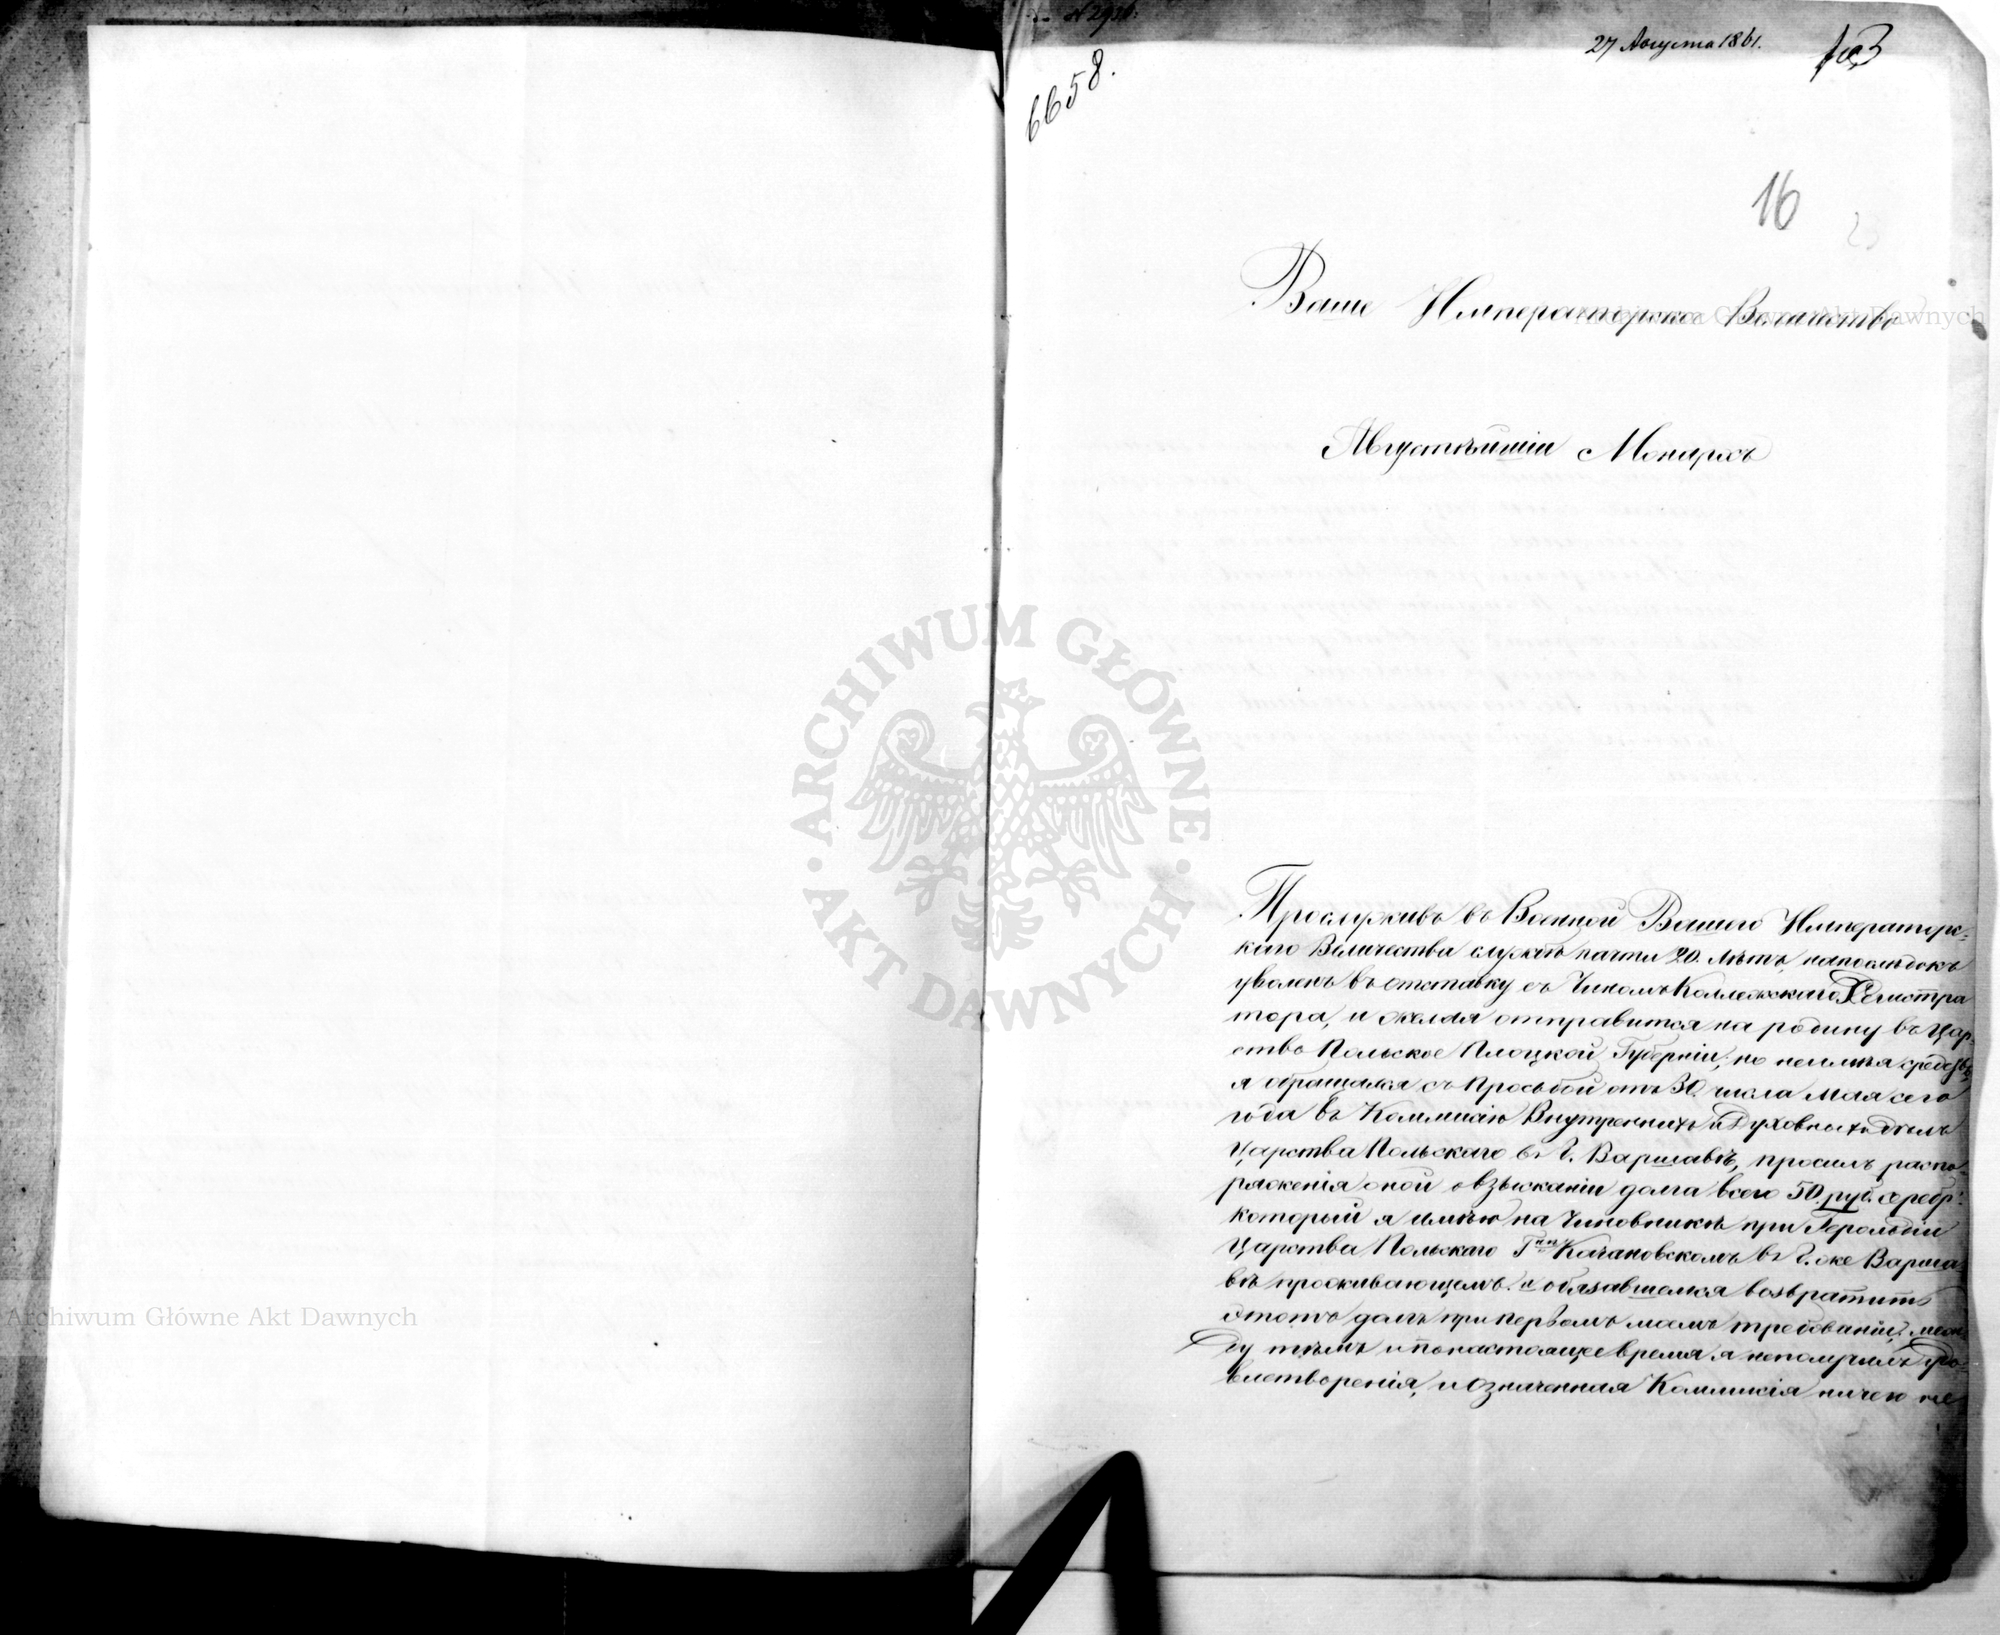 27 Августа 1861.
6658.
16
Ваше Императорское Величество
Августѣйшій Монархъ
Прослуживъ въ Военной Вашего Императорс=
каго Величества службѣ почти 20. лѣтъ, напослѣдокъ
уволенъ въ отставку съ Чиномъ Коллежскаго Регистра
тора, и желая отправится на родину въ Цар=
ство Польское Плоцкой Губерніи, но неимѣя средствъ
я обращался съ просьбой отъ 30. числа Мая сего
года въ Коммисію Внутреннихъ и Духовныхъ дѣлъ
Царства Польскаго въ Г. Варшавѣ, просилъ распо=
ряженія оной о взысканіи долга всего 50. руб. серебр:
который я имѣю на Чиновникѣ при Герольдіи
Царства Польскаго Качановскомъ въ Г. же Варша
вѣ проживающемъ. и обязавшемся возвратить
этотъ долгъ при первомъ моемъ требованіи, меж
ду тѣмъ и по настоящее время я неполучилъ удо=
влетворенія, и означенная Коммисія ничего не
Archiwum Główne Akt Dawnych
ARCHIWUM GŁÓWNE • AKT DAWNYCH •
Archiwum Główne Akt Dawnych